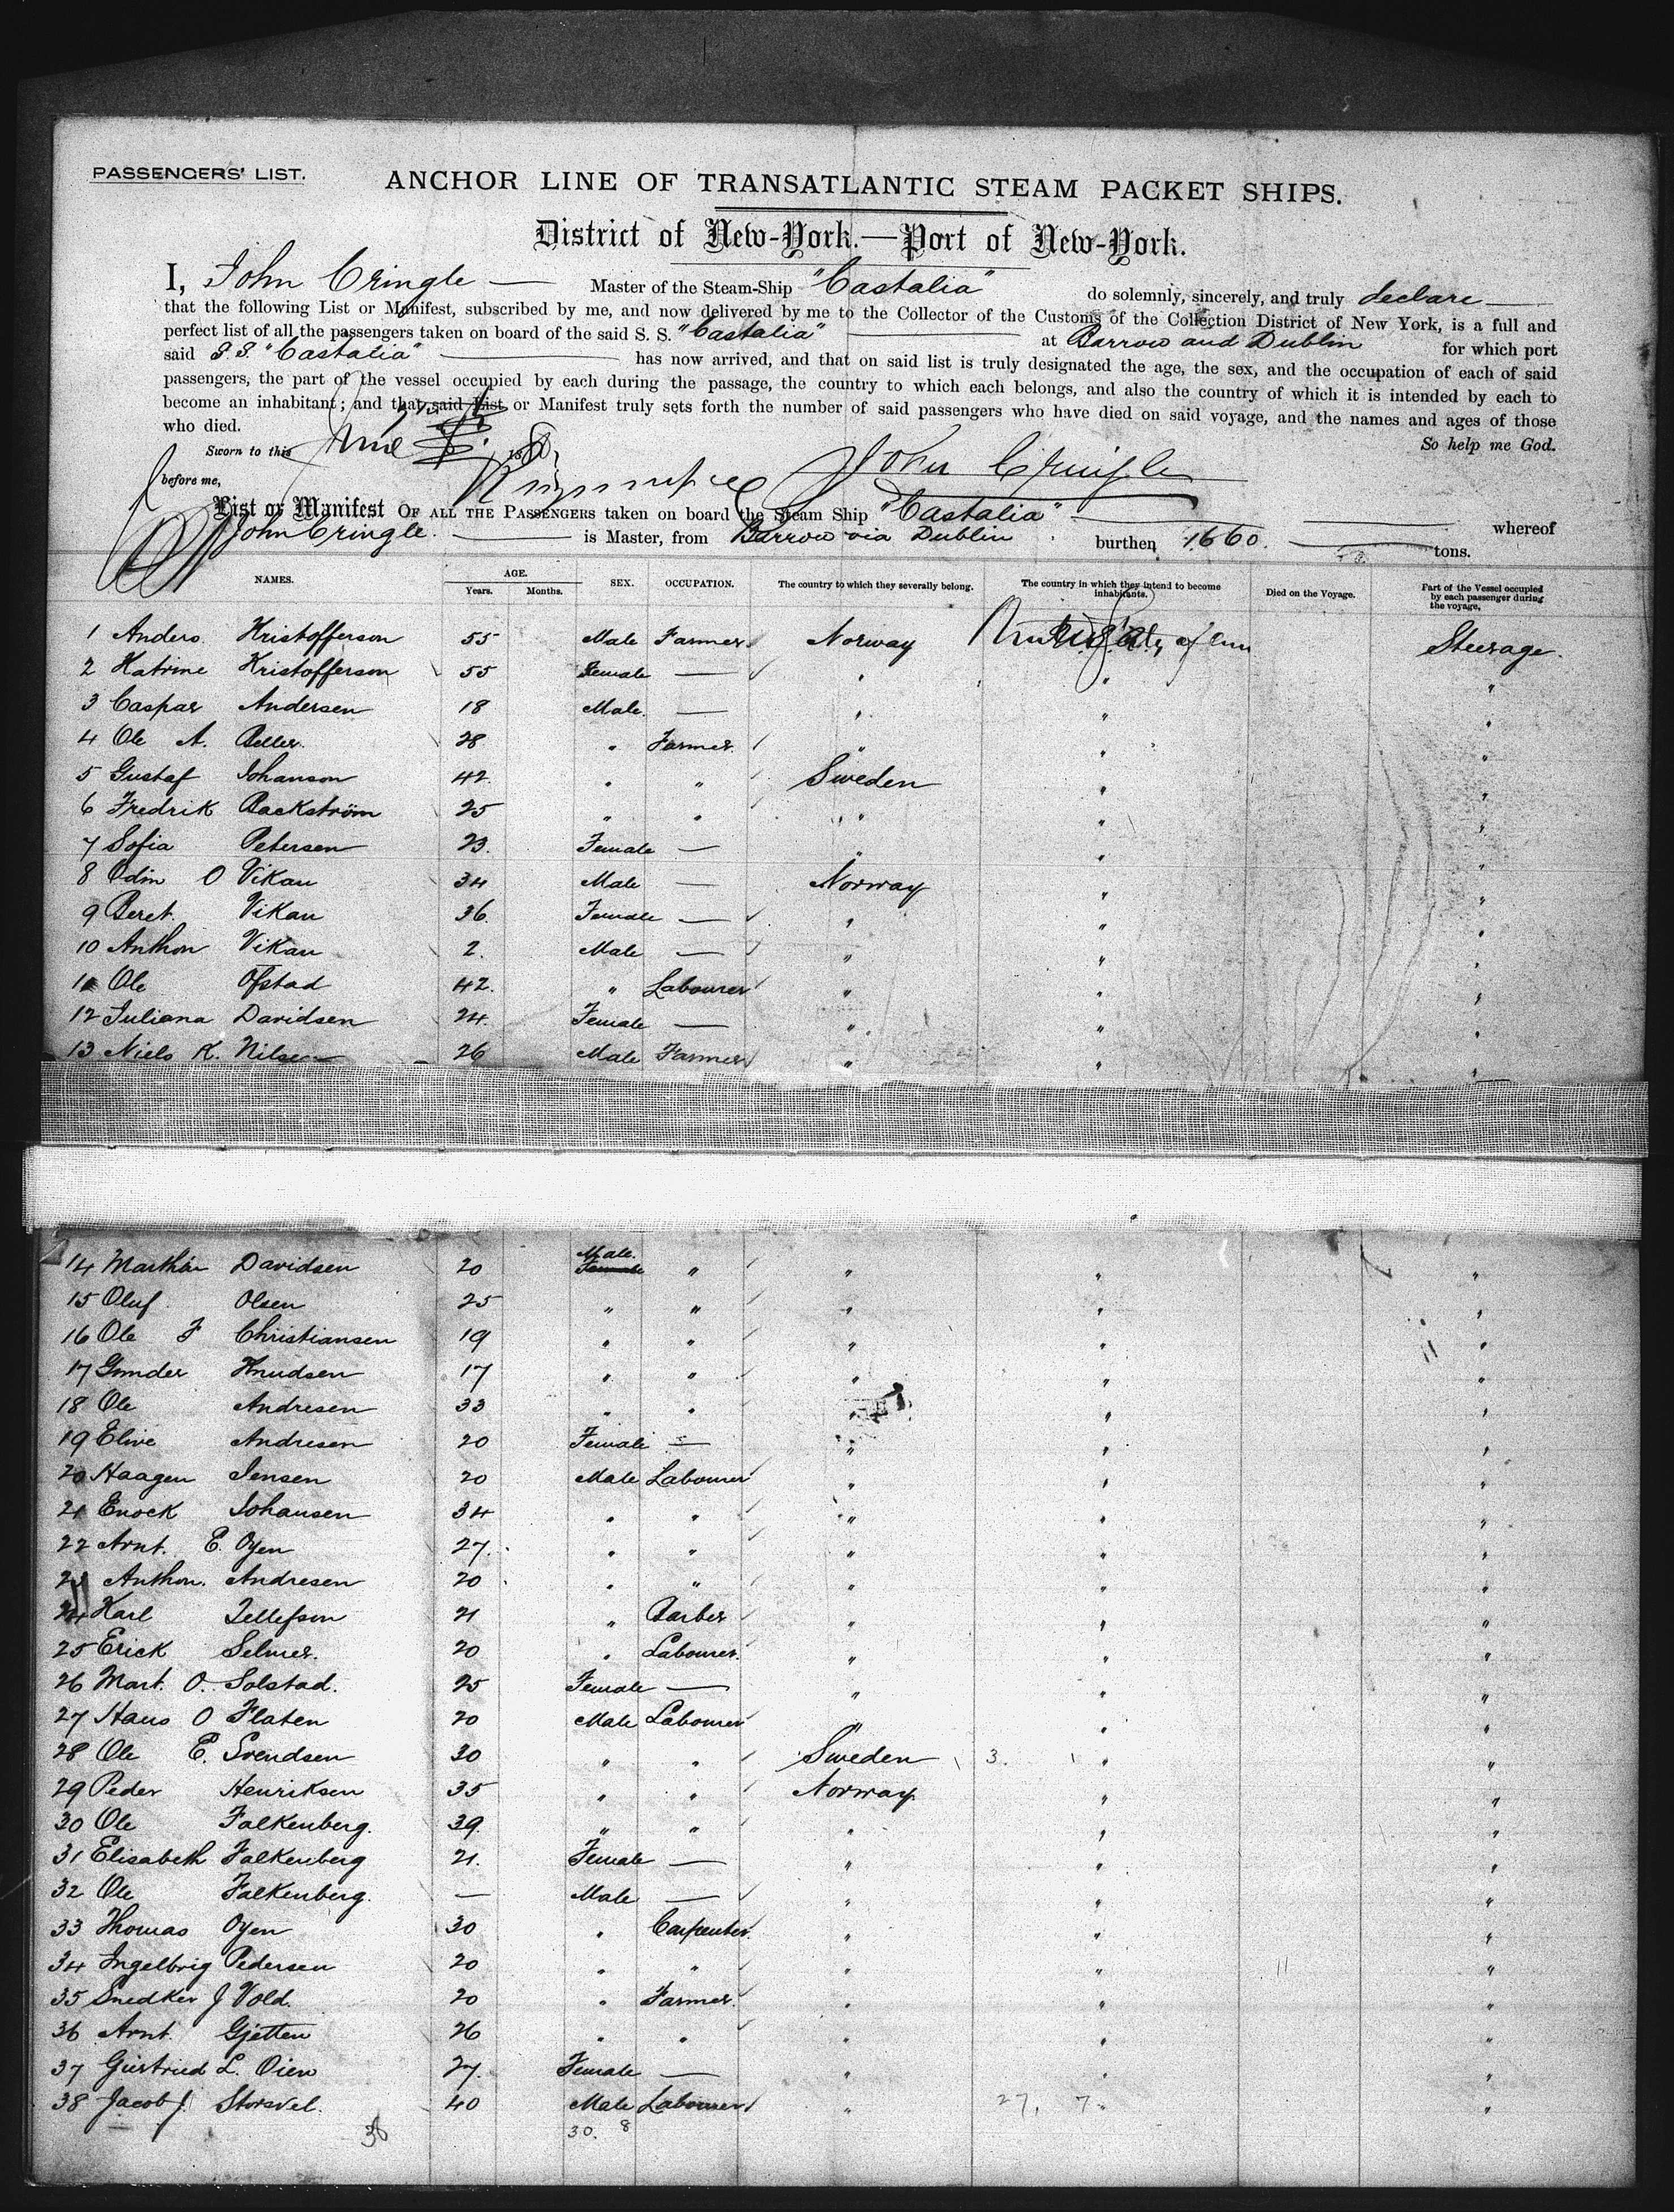 PASSENGERS' LIST.
ANCHOR LINE OF TRANSATLANTIC STEAM PACKET SHIPS.
District of New-York.—Port of New-York.
I, John Cringle — Master of the Steam-Ship "Castalia" do solemnly, sincerely, and truly declare —
that the following List or Manifest, subscribed by me, and now delivered by me to the Collector of the Customs of the Collection District of New York, is a full and
perfect list of all the passengers taken on board of the said S. S. "Castalia" — at Barrow and Dublin for which port
said S.S. "Castalia" — has now arrived, and that on said list is truly designated the age, the sex, and the occupation of each of said
passengers, the part of the vessel occupied by each during the passage, the country to which each belongs, and also the country of which it is intended by each to
become an inhabitant; and that said List or Manifest truly sets forth the number of said passengers who have died on said voyage, and the names and ages of those
who died.
So help me God.
Sworn to this June 1880
before me, John Cringle
List or Manifest OF ALL THE PASSENGERS taken on board the Steam Ship "Castalia" — whereof
John Cringle. — is Master, from Barrow via Dublin. burthen 1660. — tons.
NAMES. AGE. Years. Months. SEX. OCCUPATION. The country to which they severally belong. The country in which they intend to become inhabitants. Died on the Voyage. Part of the Vessel occupied by each passenger during the voyage.
1 Anders. Kristofferson 55 Male Farmer. Norway U.S.A. Steerage.
2 Katrine Kristofferson 55 Female — " " "
3 Caspar Andersen 18 Male. — " " "
4 Ole A. Beller. 28 " Farmer. " " "
5 Gustaf Johanson 42. " " Sweden " "
6 Fredrik Backström 25 " " " " "
7 Sofia Petersen 23. Female — " " "
8 Odin O Vikan 34 Male — Norway " "
9 Beret. Vikan 36. Female — " " "
10 Anthon Vikan 2. Male — " " "
11 Ole Ofstad 42. " Labourer " " "
12 Juliana Davidsen 24. Female — " " "
13 Niels K. Nilsen 26 Male Farmer " " "
14 Marthin Davidsen 20 Male. Female " " " "
15 Oluf Olsen 25 " " " " "
16 Ole F Christiansen 19 " " " " "
17 Gunder Knudsen 17 " " " " "
18 Ole Andresen 33 " " " " "
19 Eline Andresen 20 Female — " " "
20 Haagen Jensen 20 Male Labourer " " "
21 Enock Johansen 34 " " " " "
22 Arnt. E. Oyen 27. " " " " "
23 Anthon. Andresen 20 " " " " "
24 Karl Tellefson 21 " Barber " " "
25 Erick Selmer. 20 " Labourer. " " "
26 Mart. O. Solstad. 25 Female — " " "
27 Hans O Flaten 20 Male Labourer " " "
28 Ole E. Svendsen 30 " " Sweden 3. " "
29 Peder Henriksen 35 " " Norway " "
30 Ole Falkenberg. 39. " " " " "
31 Elisabeth Falkenberg 21. Female — " " "
32 Ole Falkenberg. — Male — " " "
33 Thomas Oyen 30 " Carpenter. " " "
34 Ingelbrig Pedersen 20 " " " " "
35 Snedker J Vold. 20 " Farmer. " " "
36 Arnt. Gjetten 26 " " " " "
37 Giertried L. Oien 27. Female — " " "
38 Jacob J. Storvel. 40 Male Labourer " 27, 7. "
38 30. 8